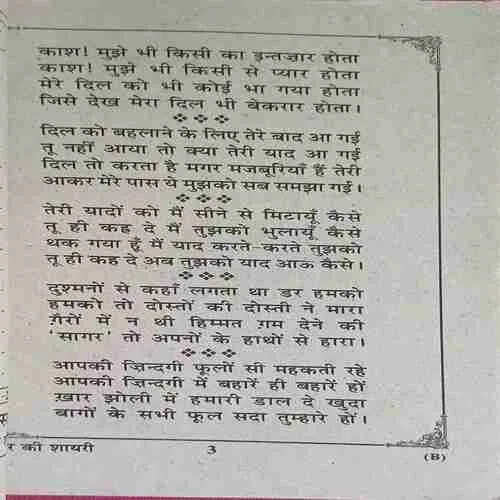 काश! मुझे भी किसी का इन्तज़ार होता
काश! मुझे भी किसी से प्यार होता
मेरे दिल को भी कोई भा गया होता
जिसे देख मेरा दिल भी बेकरार होता।
दिल को बहलाने के लिए तेरे बाद आ गई
तू नहीं आया तो क्या तेरी याद आ गई
दिल तो करता है मगर मजबूरियाँ हैं तेरी
आकर मेरे पास ये मुझको सब समझा गई।
तेरी यादों को मैं सीने से मिटायूँ कैसे
तू ही कह दे मैं तुझको भुलायूँ कैसे
थक गया हूँ मैं याद करते-करते तुझको
तू ही कह दे अब तुझको याद आऊ कैसे।
दुश्मनों से कहाँ लगता था डर हमको
हमको तो दोस्तों की दोस्ती ने मारा
ग़ैरों में न थी हिम्मत ग़म देने की
'सागर' तो अपनों के हाथों से हारा।
आपकी ज़िन्दगी फूलों सी महकती रहे
आपकी ज़िन्दगी में बहारें ही बहारें हों
ख़ार झोली में हमारी डाल दे खुदा
बागों के सभी फूल सदा तुम्हारे हों।
र की शायरी 3 (B)